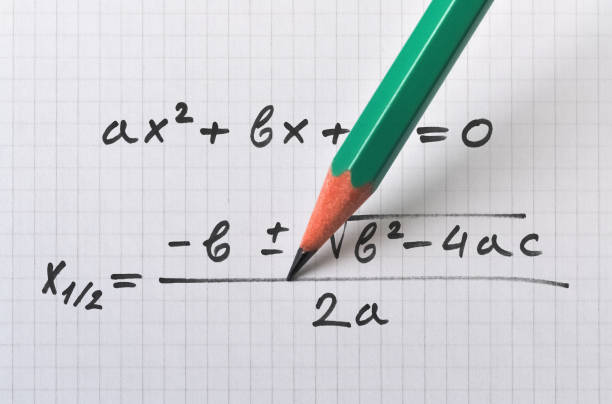 ax² + bx + = 0
x₁/₂ = (-b ± √(b²-4ac)) / 2a